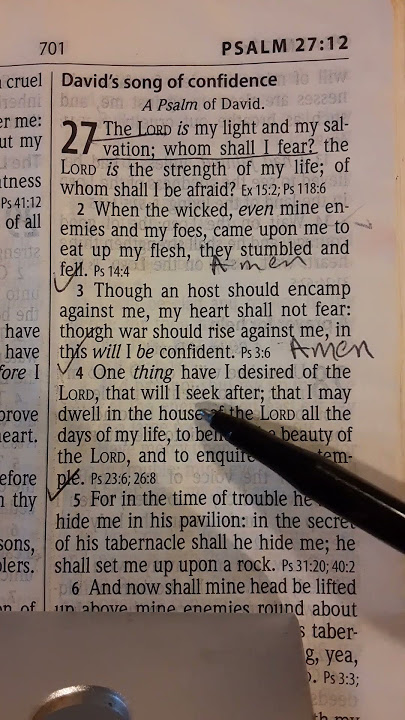 701
PSALM 27:12
cruel
er me:
ut my
tness
Ps 41:12
of all
have
have
fore I
prove
eart.
efore
n thy
sons,
lers.
n of
David's song of confidence
A Psalm of David.
27 The LORD is my light and my sal-
vation; whom shall I fear? the
LORD is the strength of my life; of
whom shall I be afraid? Ex 15:2; Ps 118:6
2 When the wicked, even mine en-
emies and my foes, came upon me to
eat up my flesh, they stumbled and
fell. Ps 14:4 Amen
3 Though an host should encamp
against me, my heart shall not fear:
though war should rise against me, in
this will I be confident. Ps 3:6 Amen
4 One thing have I desired of the
LORD, that will I seek after; that I may
dwell in the house of the LORD all the
days of my life, to beauty of
the LORD, and to enquire tem-
ple. Ps 23:6; 26:8
5 For in the time of trouble he
hide me in his pavilion: in the secret
of his tabernacle shall he hide me; he
shall set me up upon a rock. Ps 31:20; 40:2
6 And now shall mine head be lifted
up above mine enemies round about
s taber-
g, yea,
Ps 3:3;